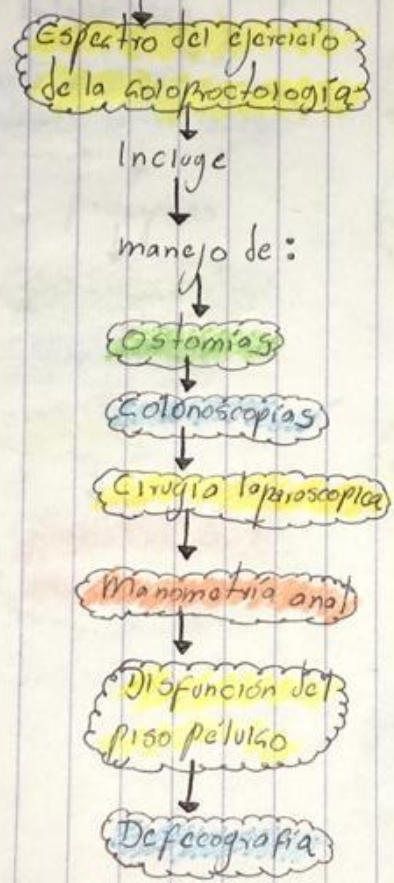 Espectro del ejercicio
de la coloproctología
Incluye
manejo de:
Ostomías
Colonoscopías
Cirugía laparoscopica
Manometría anal
Disfunción del
piso pélvico
Defecografía